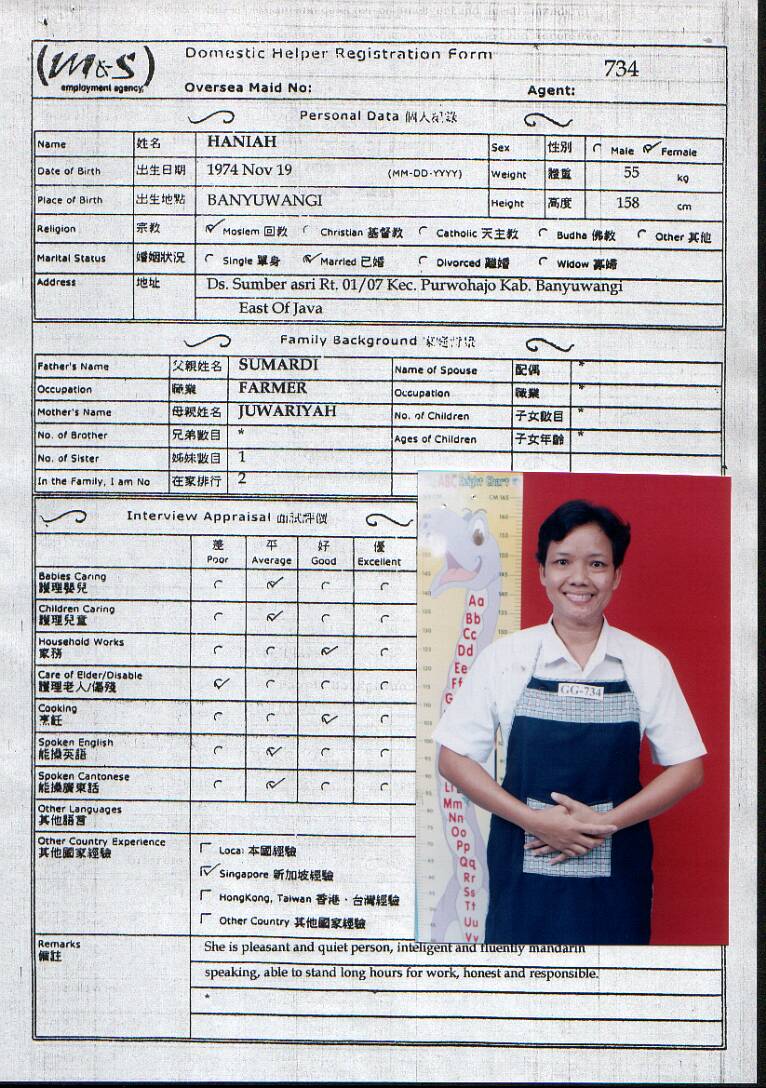 Domestic Helper Registration Form
M&S
employment agency.
734
Oversea Maid No:
Agent:
Personal Data 個人記錄
Name 姓名 HANIAH Sex 性別 Male Female
Date of Birth 出生日期 1974 Nov 19 (MM-DD-YYYY) Weight 體重 55 kg
Place of Birth 出生地點 BANYUWANGI Height 高度 158 cm
Religion 宗教 Moslem 回教 Christian 基督教 Catholic 天主教 Budha 佛教 Other 其他
Marital Status 婚姻狀況 Single 單身 Married 已婚 Divorced 離婚 Widow 寡婦
Address 地址 Ds. Sumber asri Rt. 01/07 Kec. Purwohajo Kab. Banyuwangi
East Of Java
Family Background 家庭背景
Father's Name 父親姓名 SUMARDI Name of Spouse 配偶 *
Occupation 職業 FARMER Occupation 職業 *
Mother's Name 母親姓名 JUWARIYAH No. of Children 子女數目 *
No. of Brother 兄弟數目 * Ages of Children 子女年齡 *
No. of Sister 姊妹數目 1
In the Family, I am No 在家排行 2
Interview Appraisal 面試評價
差 平 好 優
Poor Average Good Excellent
Babies Caring
護理嬰兒
Children Caring
護理兒童
Household Works
家務
Care of Elder/Disable
護理老人/傷殘
Cooking
烹飪
Spoken English
能操英語
Spoken Cantonese
能操廣東話
Other Languages
其他語言
Other Country Experience
其他國家經驗
Local 本國經驗
Singapore 新加坡經驗
HongKong, Taiwan 香港、台灣經驗
Other Country 其他國家經驗
Remarks
備註
She is pleasant and quiet person, inteligent and fluently mandarin
speaking, able to stand long hours for work, honest and responsible.
*
ABC
Aa
Bb
Cc
Dd
Ee
Ff
G
GG-734
Mm
Nn
Oo
Pp
Qq
Rr
Ss
Tt
Uu
Vv